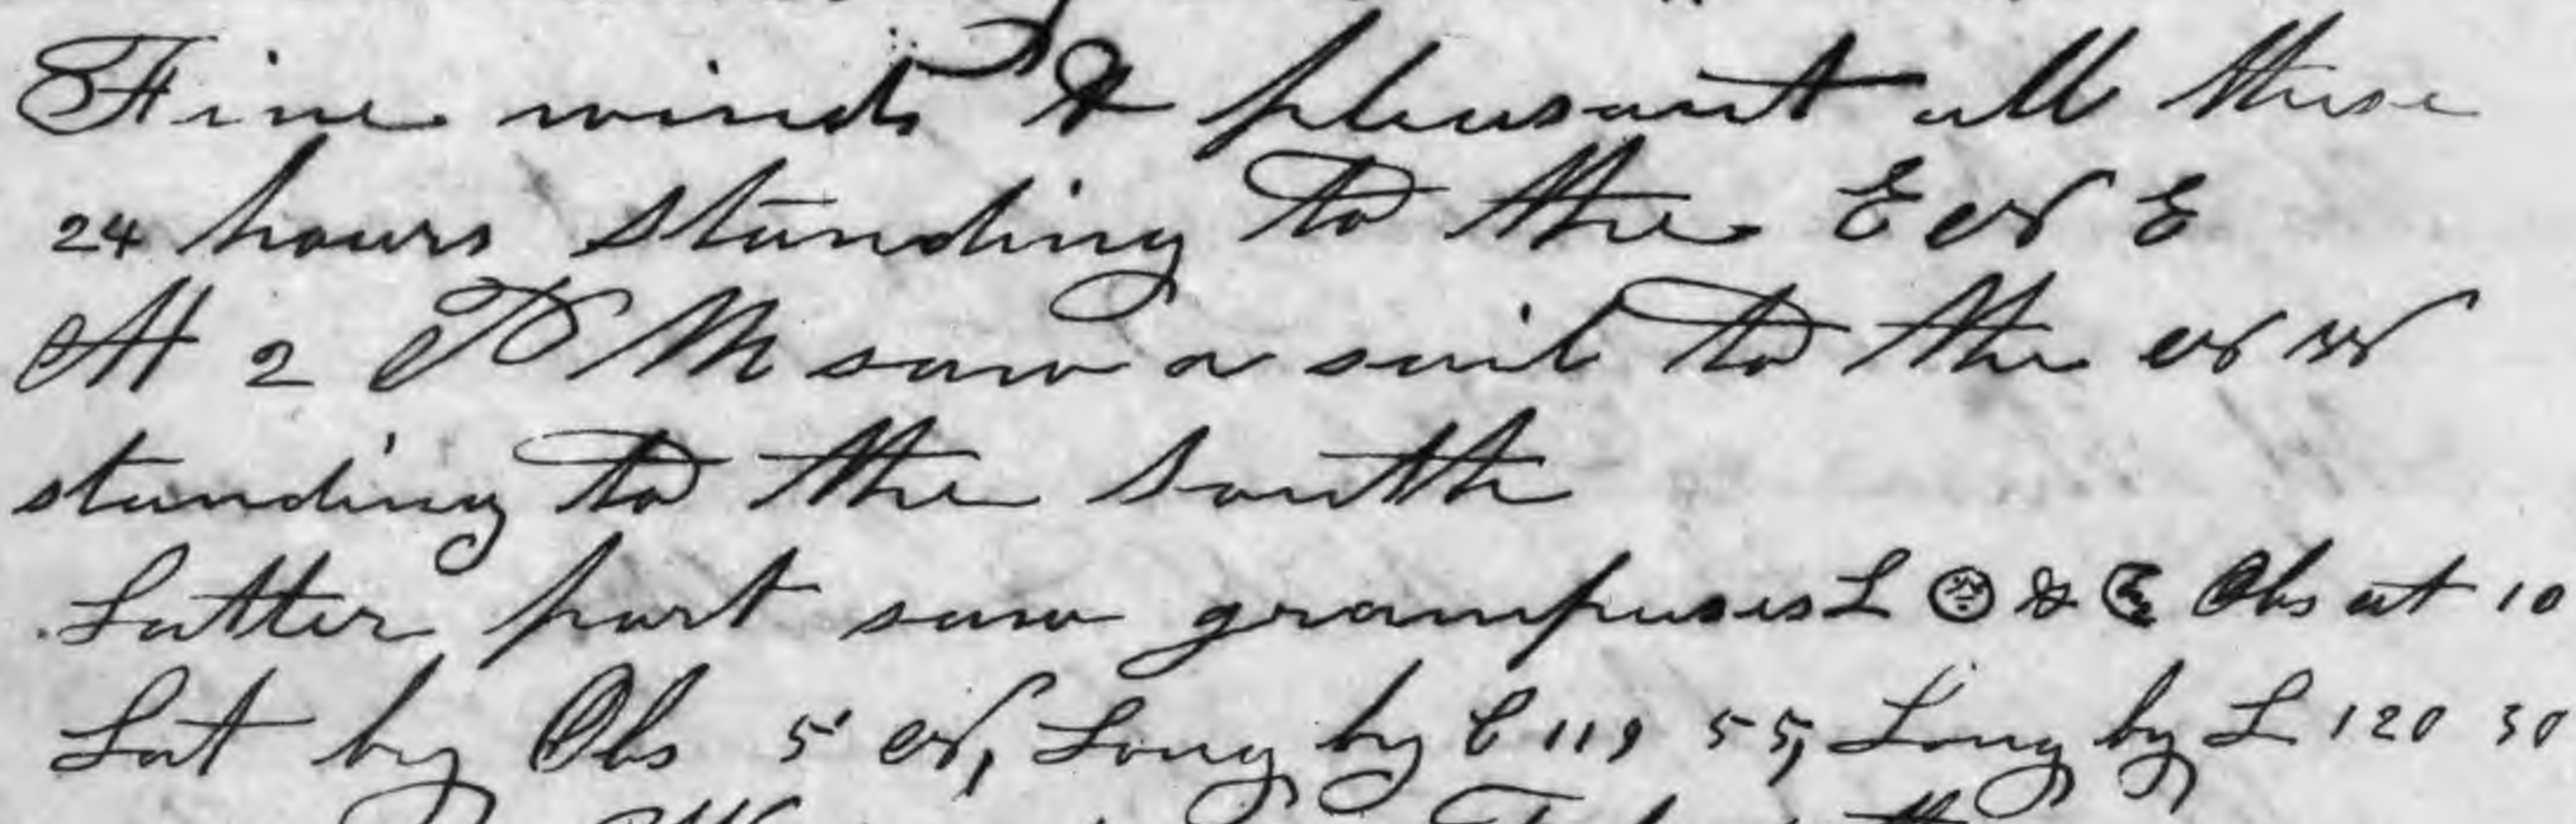 Fine winds & pleasant all these
24 hours standing to the E N E
At 2 P M saw a sail to the N W
standing to the south
Latter part saw grampuses L ☉ & ☾ Obs at 10
Lat by Obs 5 N, Long by C 119 55, Long by L 120 30